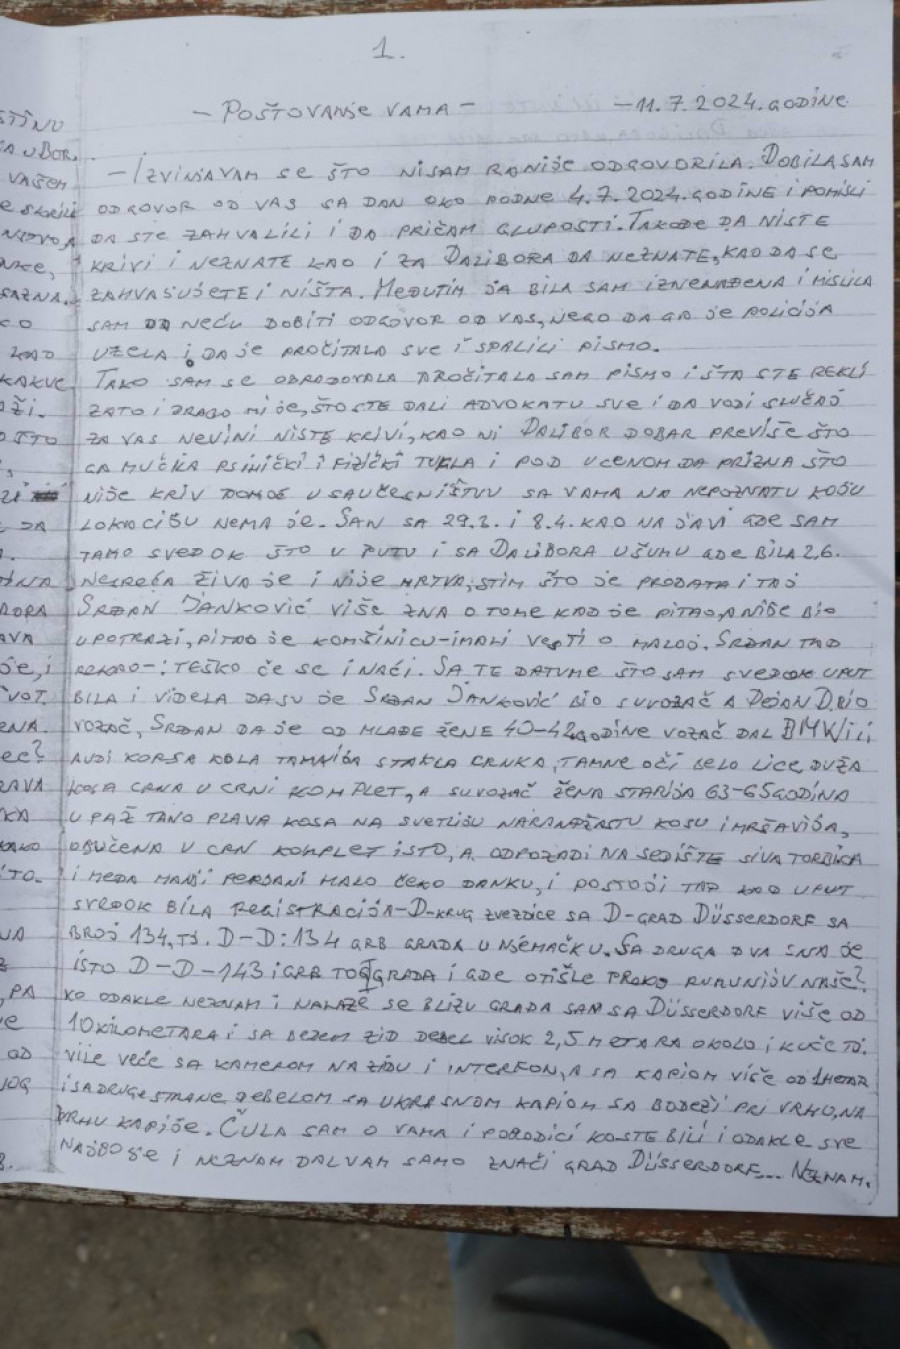 1.
- POŠTOVANJE VAMA - - 11.7.2024. GODINE
- IZVINJAVAM SE ŠTO NISAM RANIJE ODGOVORILA. DOBILA SAM
ODGOVOR OD VAS SA DAN OKO PODNE 4.7.2024. GODINE I POMISLI
DA STE ZAHVALILI I DA PRIČAM GLUPOSTI. TAKOĐE DA NISTE
KRIVI I NEZNATE KAO I ZA DALIBORA DA NEZNATE, KAO DA SE
ZAHVALJUJETE I NIŠTA. MEĐUTIM JA BILA SAM IZNENAĐENA I MISLILA
SAM DA NEĆU DOBITI ODGOVOR OD VAS, NEGO DA GA JE POLICIJA
UZELA I DA JE PROČITALA SVE I SPALILI PISMO.
TAKO SAM SE OBRADOVALA PROČITALA SAM PISMO I ŠTA STE REKLI
ZATO I DRAGO MI JE, ŠTO STE DALI ADVOKATU SVE I DA VODI SLUČAJ
ZA VAS NEVINI NISTE KRIVI, KAO NI DALIBOR DOBAR PREVIŠE ŠTO
GA MUČILA PSIHIČKI I FIZIČKI TUKLA I POD UCENOM DA PRIZNA ŠTO
NIJE KRIV POMOĆ U SAUČESNIŠTVU SA VAMA NA NEPOZNATU KOJU
LOKACIJU NEMA JE. SAN SA 29.3. I 8.4. KAO NA JAVI GDE SAM
TAMO SVEDOK ŠTO U PUTU I SA DALIBORA U ŠUMU GDE BILA 2,6.
NESREĆA ŽIVA JE I NIJE MRTVA, STIM ŠTO JE PRODATA I TAJ
SRĐAN JANKOVIĆ VIŠE ZNA O TOME KAD JE PITAO, A NIJE BIO
U POTRAZI, PITAO JE KOMŠINICU - IMALI VESTI O MALOJ. SRĐAN TAD
REKAO - : TEŠKO ĆE SE I NAĆI. SA TE DATUME ŠTO SAM SVEDOK UPUT
BILA I VIDELA DA SU JE SRĐAN JANKOVIĆ BIO SUVOZAČ A DEJAN D. BIO
VOZAČ, SRĐAN DA JE OD MLAĐE ŽENE 40-42 GODINE VOZAČ DAL BMW ILI
AUDI KORSA KOLA TAMNIJA STAKLA CRNKA, TAMNE OČI BELO LICE, DUŽA
KOSA CRNA U CRNI KOMPLET, A SUVOZAČ ŽENA STARIJA 63-65 GODINA
U PAŽ TANO PLAVA KOSA NA SVETLIJU NARANDŽASTU KOSU I MRŠAVIJA,
OBUČENA U CRN KOMPLET ISTO, A ODPOZADI NA SEDIŠTE SIVA TORBICA
I MEDA MANJI PERSANI MALO ĆEKO DANKU, I POSTOJI TAD KAO UPUT
SVEDOK BILA REGISTRACIJA - D - KRUG ZVEZDICE SA D - GRAD DÜSSERDORF SA
BROJ 134, TJ. D - D : 134 GRB GRADA U NJEMAČKU. SA DRUGA DVA SNA JE
ISTO D - D - 143 I GRB TOG GRADA I GDE OTIŠLE PREKO RUMUNIJU NAŠE?
KO ODAKLE NEZNAM I NALAZE SE BLIZU GRADA SAM SA DÜSSERDORF VIŠE OD
10 KILOMETARA I SA BEDEM ZID DEBEL VISOK 2,5 METARA OKOLO I KUĆE TJ.
VILE VEĆE SA KAMEROM NA ZIDU I INTERFON, A SA KAPIOM VIŠE OD 1 METAR
I SA DRUGE STRANE DEBELOM SA UKRASNOM KAPIOM SA BODEŽI PRI VRHU, NA
VRHU KAPIJE. ČULA SAM O VAMA I PORODICI KO STE BILI I ODAKLE SVE
NAJBOLJE I NEZNAM DAL VAM SAMO ZNAČI GRAD DÜSSERDORF... NEZNAM.